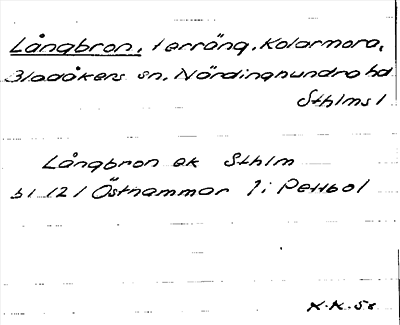 Långbron, terräng, Kolarmora,
Bladåkers sn, Närdinghundra hd
Sthlms l
Långbron ek Sthlm
bl 121 Östhammar 1: Pettbol
K.K. 58